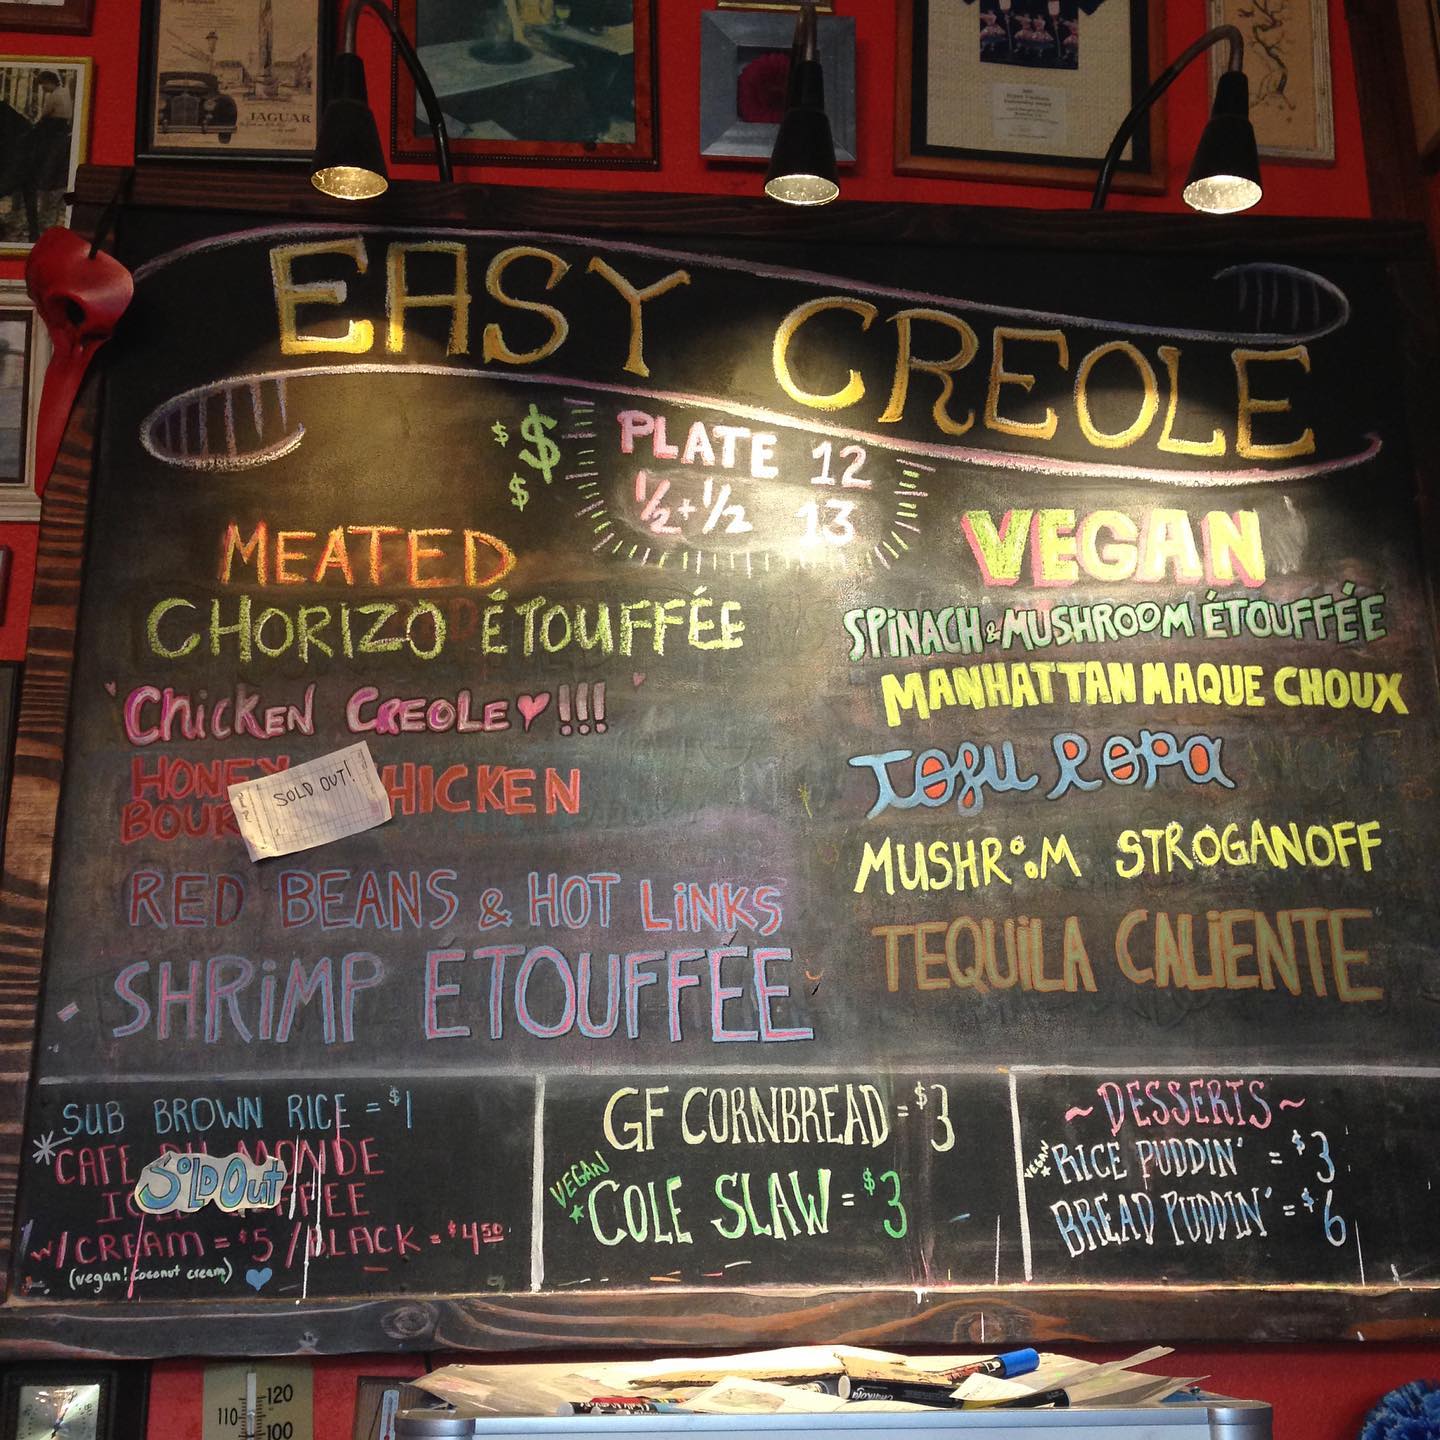 JAGUAR
EASY CREOLE
$ $ $
PLATE 12
½+½ 13
MEATED
CHORIZO ÉTOUFFÉE
CHICKEN CREOLE ♥ !!!
HONEY CHICKEN
BOUR
SOLD OUT!
RED BEANS & HOT LINKS
SHRIMP ÉTOUFFÉE
VEGAN
SPINACH & MUSHROOM ÉTOUFFÉE
MANHATTAN MAQUE CHOUX
TOFU ROPA
MUSHROOM STROGANOFF
TEQUILA CALIENTE
SUB BROWN RICE = $1
* CAFE DU MONDE
ICED COFFEE
SOLD OUT
W/ CREAM = $5 / BLACK = $4.50
(vegan! coconut cream)
GF CORNBREAD = $3
VEGAN
* COLE SLAW = $3
~ DESSERTS ~
VEGAN * RICE PUDDIN' = $3
BREAD PUDDIN' = $6
120
110
100